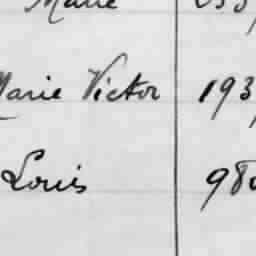 Marie
Marie Victor 193
Louis 980